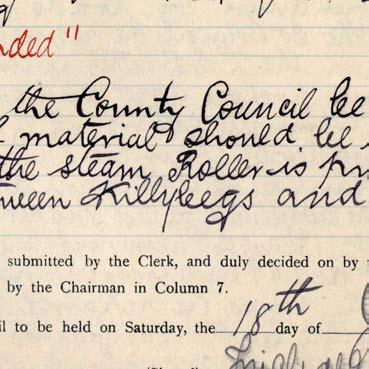 nded"
the County Council be
material should be
the steam Roller is
tween Killybegs and
submitted by the Clerk, and duly decided on by
by the Chairman in Column 7.
il to be held on Saturday, the 18th day of